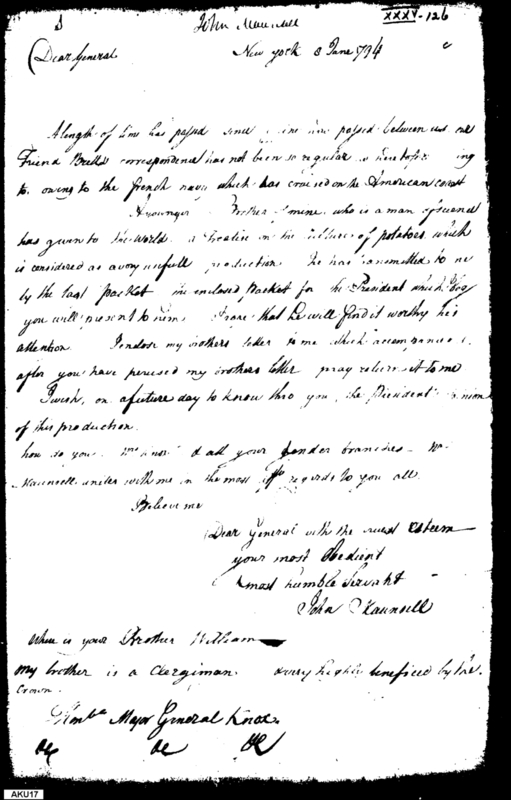 John Maunsell
XXXV-126
New York 8 June 1794
Dear General
A length of time has passed since a line has passed between us our
Friend Bull's correspondence has not been so regular as heretofore
owing to the french navy which has cruised on the American coast
A younger Brother of mine who is a man of science
has given to the World a treatise on the culture of potatoes which
is considered as a very usefull production. he has transmitted to me
by the last packet the enclosed Packet for the President which I beg
you will present to him. I hope that he will find it worthy his
attention I enclose my brothers letter to me which accompanied
after you have perused my brothers letter pray return it to me
I wish, on a future day to know thro you, the President's opinion
of this production.
how do you Mrs Knox & all your tender branches Mrs
Maunsell unites with me in the most affe regards to you all
Believe me
Dear General with the truest esteem
your most Obedient
& most humble Servant
John Maunsell
Where is your Brother William
my brother is a Clergiman very highly beneficed by the
Crown.
Honble Major General Knox
&c &c &c
AKU17